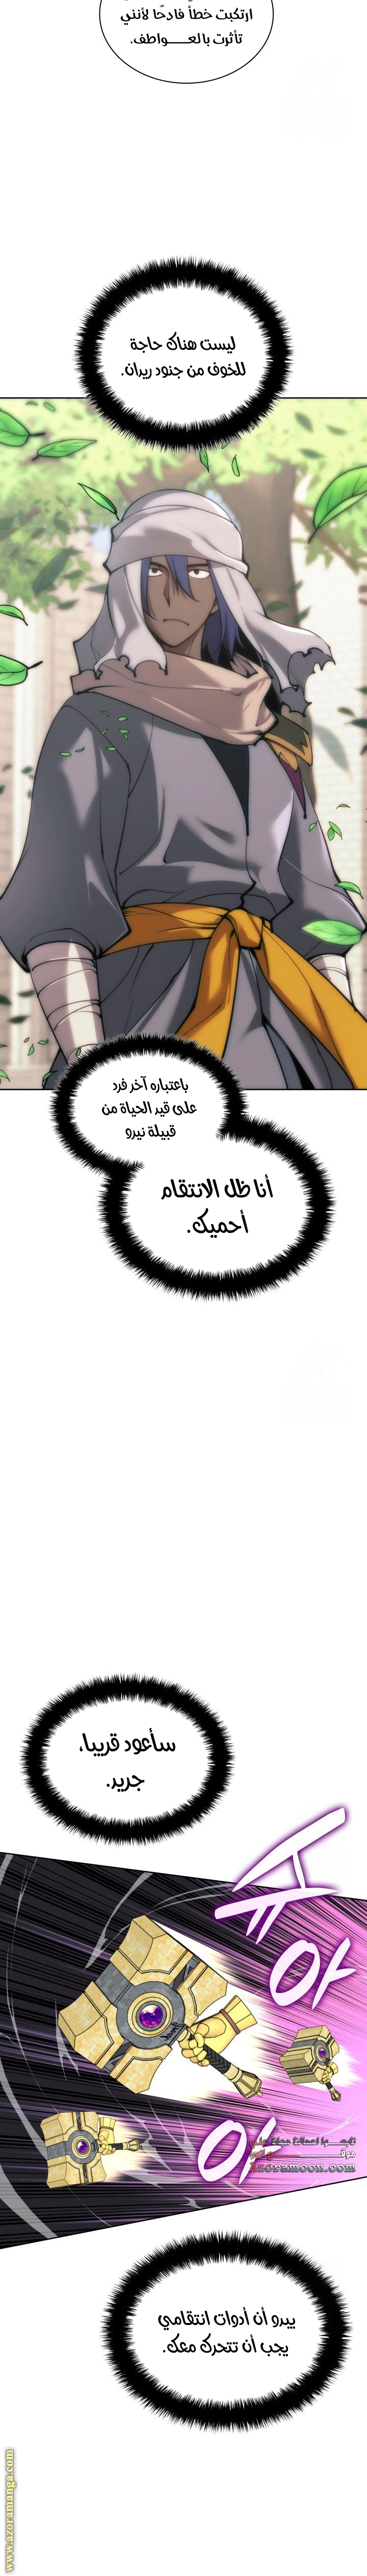 ارتكبت خطأً فادحًا لأنني
تأثرت بالعـــواطف.
ليست هناك حاجة
للخوف من جنود ريدان.
باعتباره آخر فرد
على قيد الحياة من
قبيلة نيرو
أنا ظل الانتقام
أحميك.
سأعود قريبا،
جريد.
슈
아
아
azoramoon.com
يبدو أن أدوات انتقامي
يجب أن تتحرك معك.
www.azoramanga.com